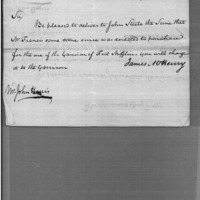 Sir,
Be pleased to deliver to John Stotts the Scow that
Mr Francis some some since was directed to purchase
for the use of the Garrison of Fort Mifflin. you will charge
it to the Garrison
James McHenry
Mr John Harris